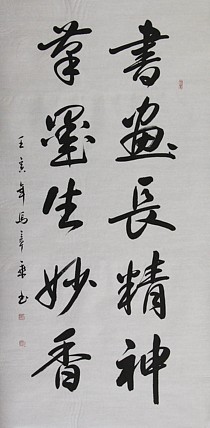 書畫長精神
筆墨生妙香
壬寅年馬彦乘书